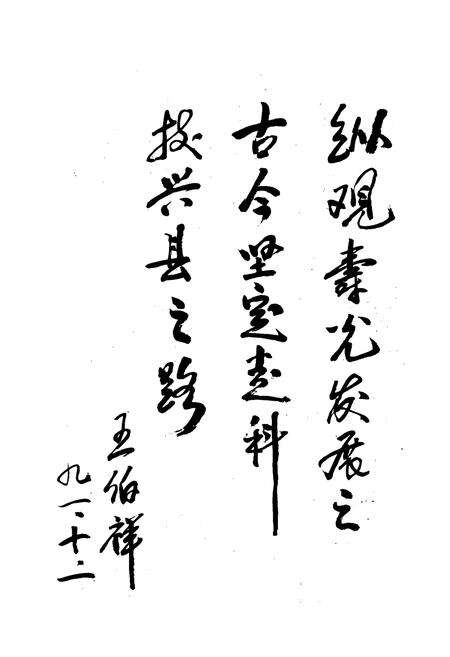 纵观寿光发展之
古今坚定走科
技兴县之路
王伯祥
九一、十二